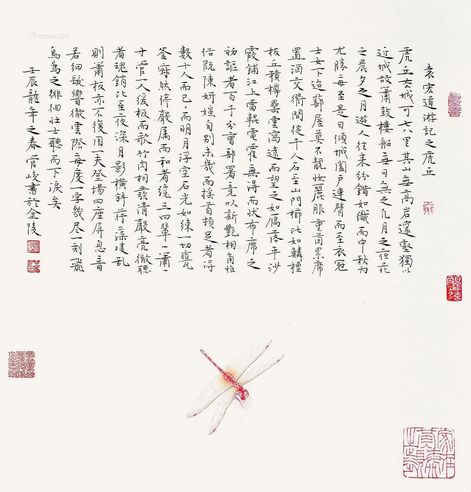 袁宏道游记之虎丘
虎丘去城可七八里其山無高岩邃壑獨以
近城故簫鼓樓船每日無之凡月之夜花
之晨夕月遊人往來紛錯如織而中秋為
尤勝每至是日傾城闔户連臂而至衣冠
士女下迨蔀屋莫不靚妝麗服重茵累席
置酒交衢間從千人石至山門櫛比如鱗檀
板丘積樽罍雲瀉遠而望之如雁落平沙
霞鋪江上雷輥電霍無得而狀布席之
初謳者百千分曹部署竞以新艷相角雅
俗既陳妍媸自别未幾而搖首頓足者得
數十人而已已明月浮空石光如練一切瓦
釜寂然停聲屬而和者纔三四輩一簫一
寸管一人緩板而歌竹肉相發清聲徹聽
者魂銷比至夜深月影横斜荇藻凌亂
則簫板亦不復用一夫登場四座屏息音
若細髮響徹雲際每度一字幾盡一刻飛
鳥為之徘徊壮士聽而下淚矣
壬辰龍年之春 峻書於金陵